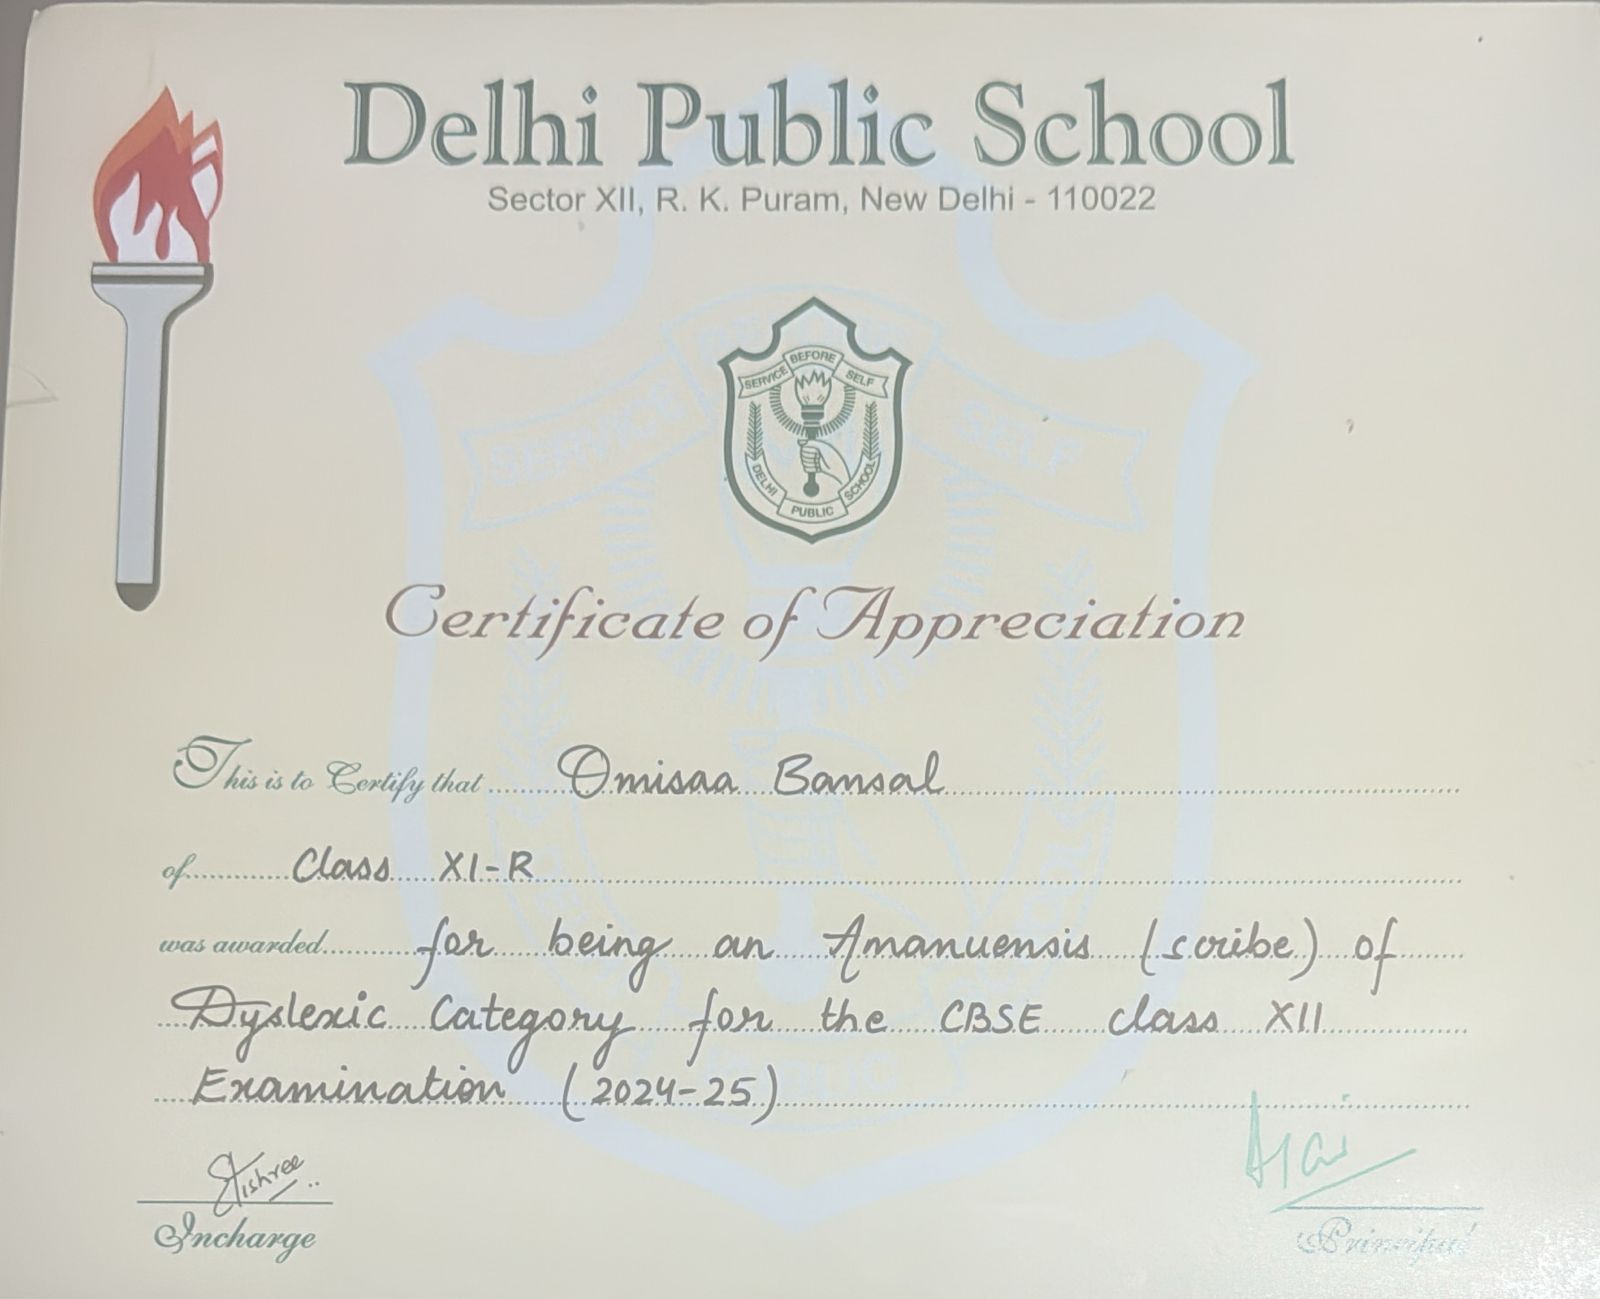 Delhi Public School
Sector XII, R. K. Puram, New Delhi - 110022
SERVICE BEFORE SELF
DELHI PUBLIC SCHOOL
Certificate of Appreciation
This is to Certify that Omisaa Bansal
of Class XI-R
was awarded for being an Amanuensis (scribe) of
Dyslexic Category for the CBSE class XII
Examination (2024-25)
Incharge
Principal